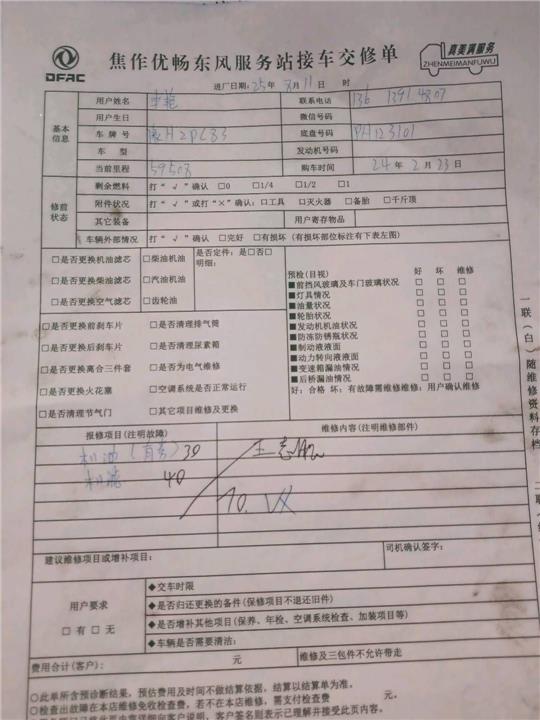 DFAC
焦作优畅东风服务站接车交修单
真美满服务
ZHENMEIMANFUWU
进厂日期:25年 月11日 时
基本信息
用户姓名 联系电话 136
用户生日 微信号码
车牌号 底盘号码 PH123101
车型 发动机号码
当前里程 59508 购车时间 24年2月23日
修前状态
剩余燃料 打“√”确认 □0 □1/4 □1/2 □1
附件状况 打“√”或打“×”确认:□工具 □灭火器 □备胎 □千斤顶
其它装备 用户寄存物品
车辆外部情况 打“√”确认 □完好 □有损坏(有损坏部位标注有下表左图)
□是否更换机油滤芯 □柴油机油 是否定件:是□否□
明细:
□是否更换柴油滤芯 □汽油机油
□是否更换空气滤芯 □齿轮油
□是否更换前刹车片 □是否清理排气筒
□是否更换后刹车片 □是否清理尿素箱
□是否更换离合三件套 □是否为电气维修
□是否更换火花塞 □空调系统是否正常运行
□是否清理节气门 □其它项目维修及更换
预检(目视) 好 坏 维修
■前挡风玻璃及车门玻璃状况 □ □ □
■灯具情况 □ □ □
■油量状况 □ □ □
■轮胎状况 □ □ □
■发动机机油状况 □ □ □
■防冻防锈瓶状况 □ □ □
■制动液液面 □ □ □
■动力转向液液面 □ □ □
■变速箱漏油情况 □ □ □
■后桥漏油情况 □ □ □
好:合格 坏:有故障需维修维修:用户确认维修
报修项目(注明故障) 维修内容(注明维修部件)
机油(自带)30
机滤 40
70.
建议维修项目或增补项目: 司机确认签字:
用户要求
□有□无
◆交车时限
◆是否归还更换的备件(保修项目不退还旧件)
◆是否增补其他项目(保养、年检、空调系统检查、加装项目等)
◆车辆是否需要清洁:
费用合计(客户): 元 维修及三包件不允许带走
○此单所含预诊断结果,预估费用及时间不做结算依据,结算以结算单为准。
○检查出故障在本店维修免收检查费,若不在本店维修,需支付检查费 元。
一联(白)随维修资料存档